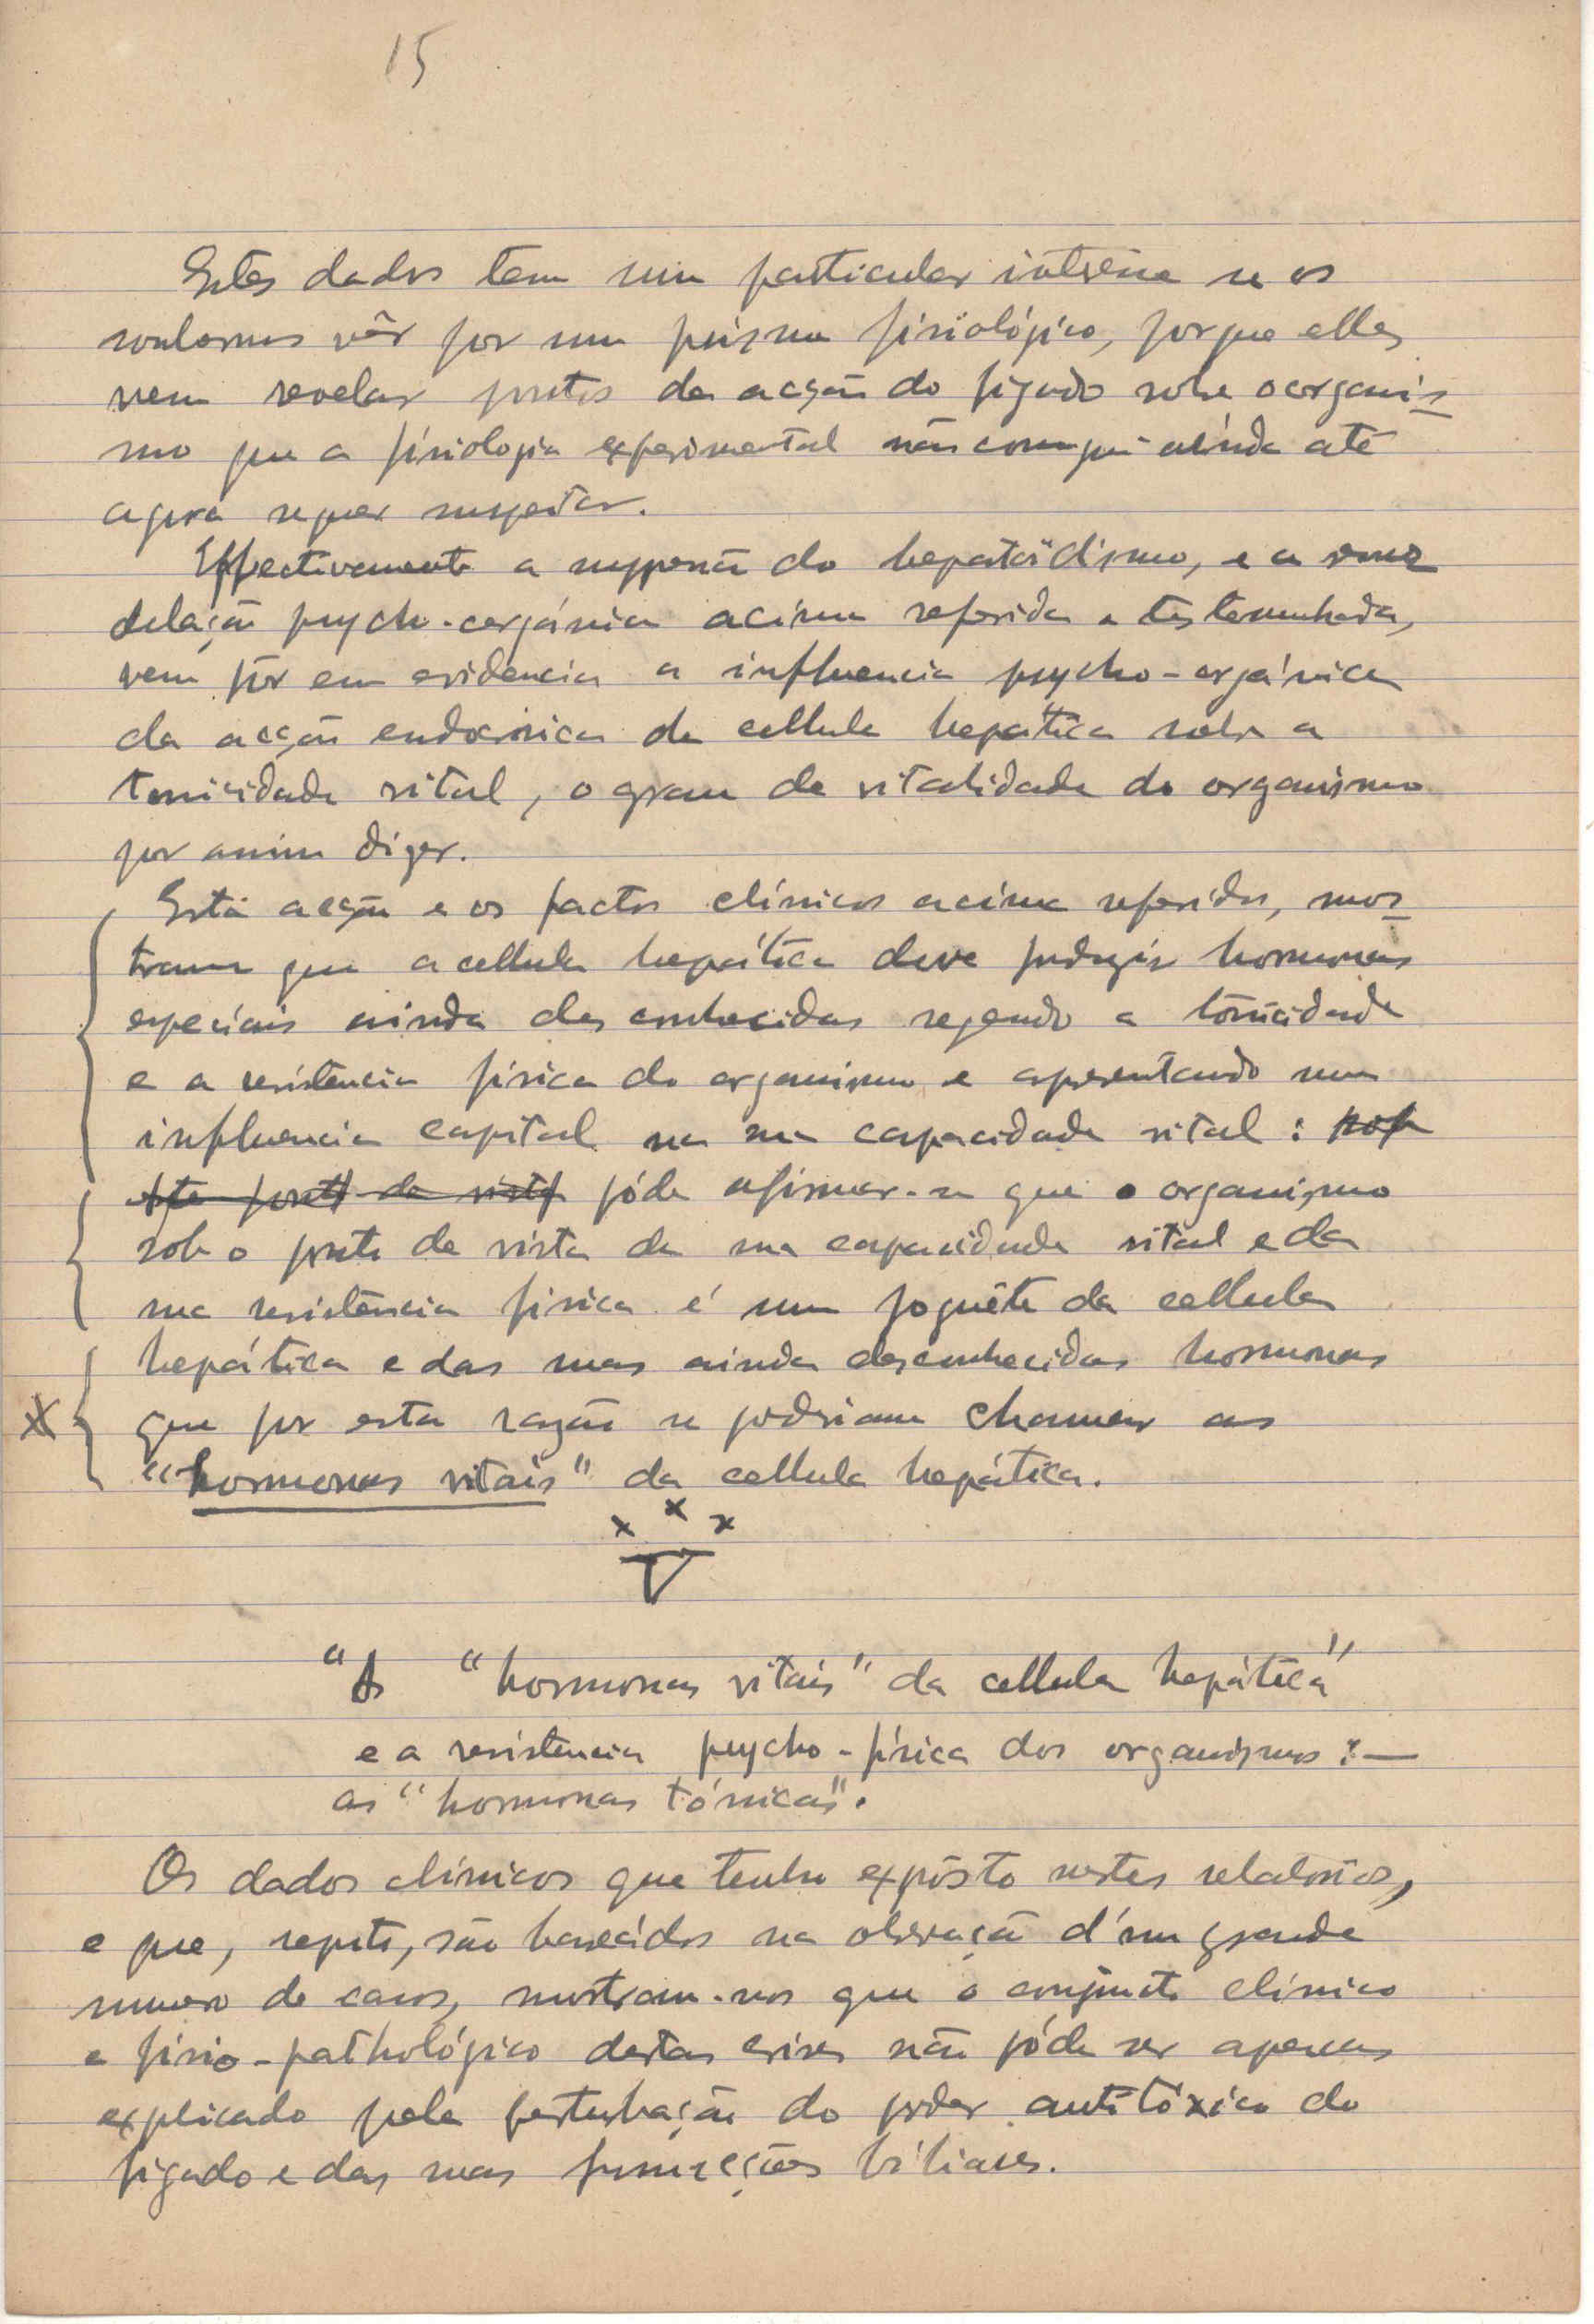 15
Estes dados tem um particular interêsse se os
soubermos vêr por um prisma fisiológico, porque elles
vem revelar pontos da acção do figado sobre o organis-
mo que a fisiologia experimental não conseguiu ainda até
agora sequer suspeitar.
Effectivamente a suppressão do hepatoïdismo, e a remo-
delação psycho-orgánica acima referida e testemunhada,
vem pôr em evidencia a influencia psycho-orgánica
da acção endocrinica da cellula hepática sobre a
tonicidade vital, o grau de vitalidade do organismo
por assim dizer.
Esta acção e os factos clínicos acima referidos, mos-
tram que a cellula hepática deve produzir hormonas
especiais ainda desconhecidas regendo a tonicidade
e a resistencia física do organismo e apresentando uma
influencia capital na sua capacidade vital : sob
este ponto de vista póde afirmar-se que o organismo
sob o ponto de vista da sua capacidade vital e da
sua resistência física é um joguête da cellula
hepática e das suas ainda desconhecidas hormonas
X que por esta razão se poderiam chamar as
"hormonas vitais" da cellula hepática.
x x x
V
"As "hormonas vitais" da cellula hepática"
e a resistencia psycho-física dos organismos :—
as "hormonas tónicas".
Os dados clínicos que tenho expôsto nestes relatorios,
e que, repito, são baseádos na observação d'um grande
numero de casos, mostram-nos que o conjuncto clínico
e fisio-pathológico destas crises não póde ser apenas
explicado pela perturbação do poder antitóxico do
figado e das suas funcções biliares.